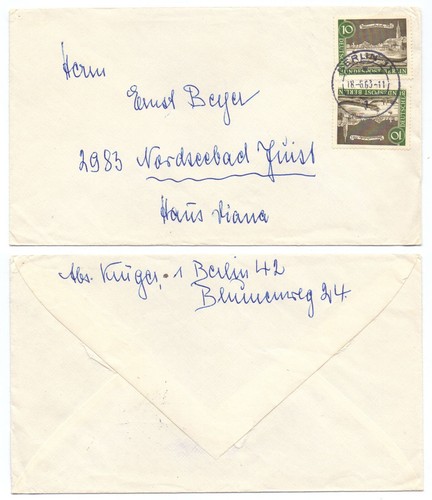 Herrn
Ernst Beyer
2983 Nordseebad Juist
Haus Diana
10
DEUTSCHE
POST BERLIN
BERLIN
18-6.63-11
POST BERLIN
10
Abs. Krüger, 1 Berlin 42
Blumenweg 24.